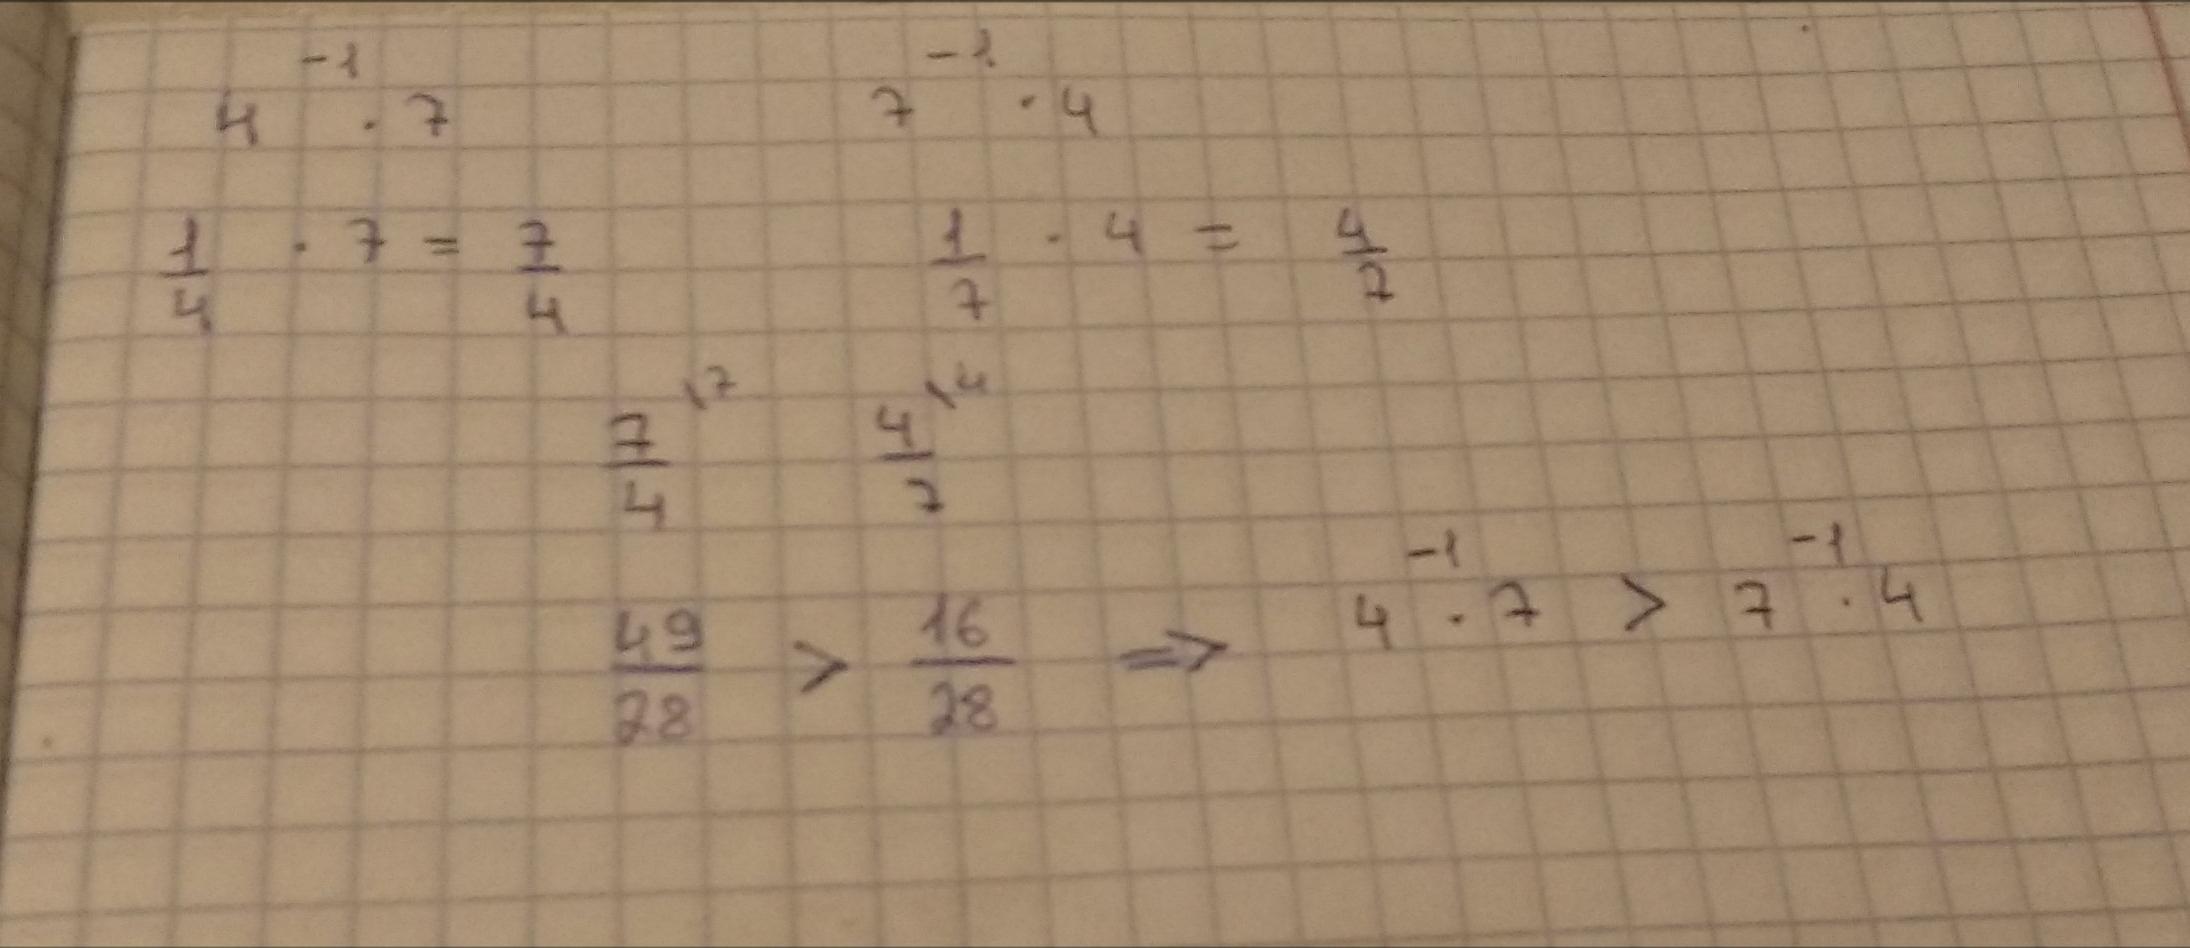 4⁻¹ · 7    7⁻¹ · 4
1/4 · 7 = 7/4    1/7 · 4 = 4/7
7/4 \7    4/7 \4
49/28 > 16/28 => 4⁻¹ · 7 > 7⁻¹ · 4